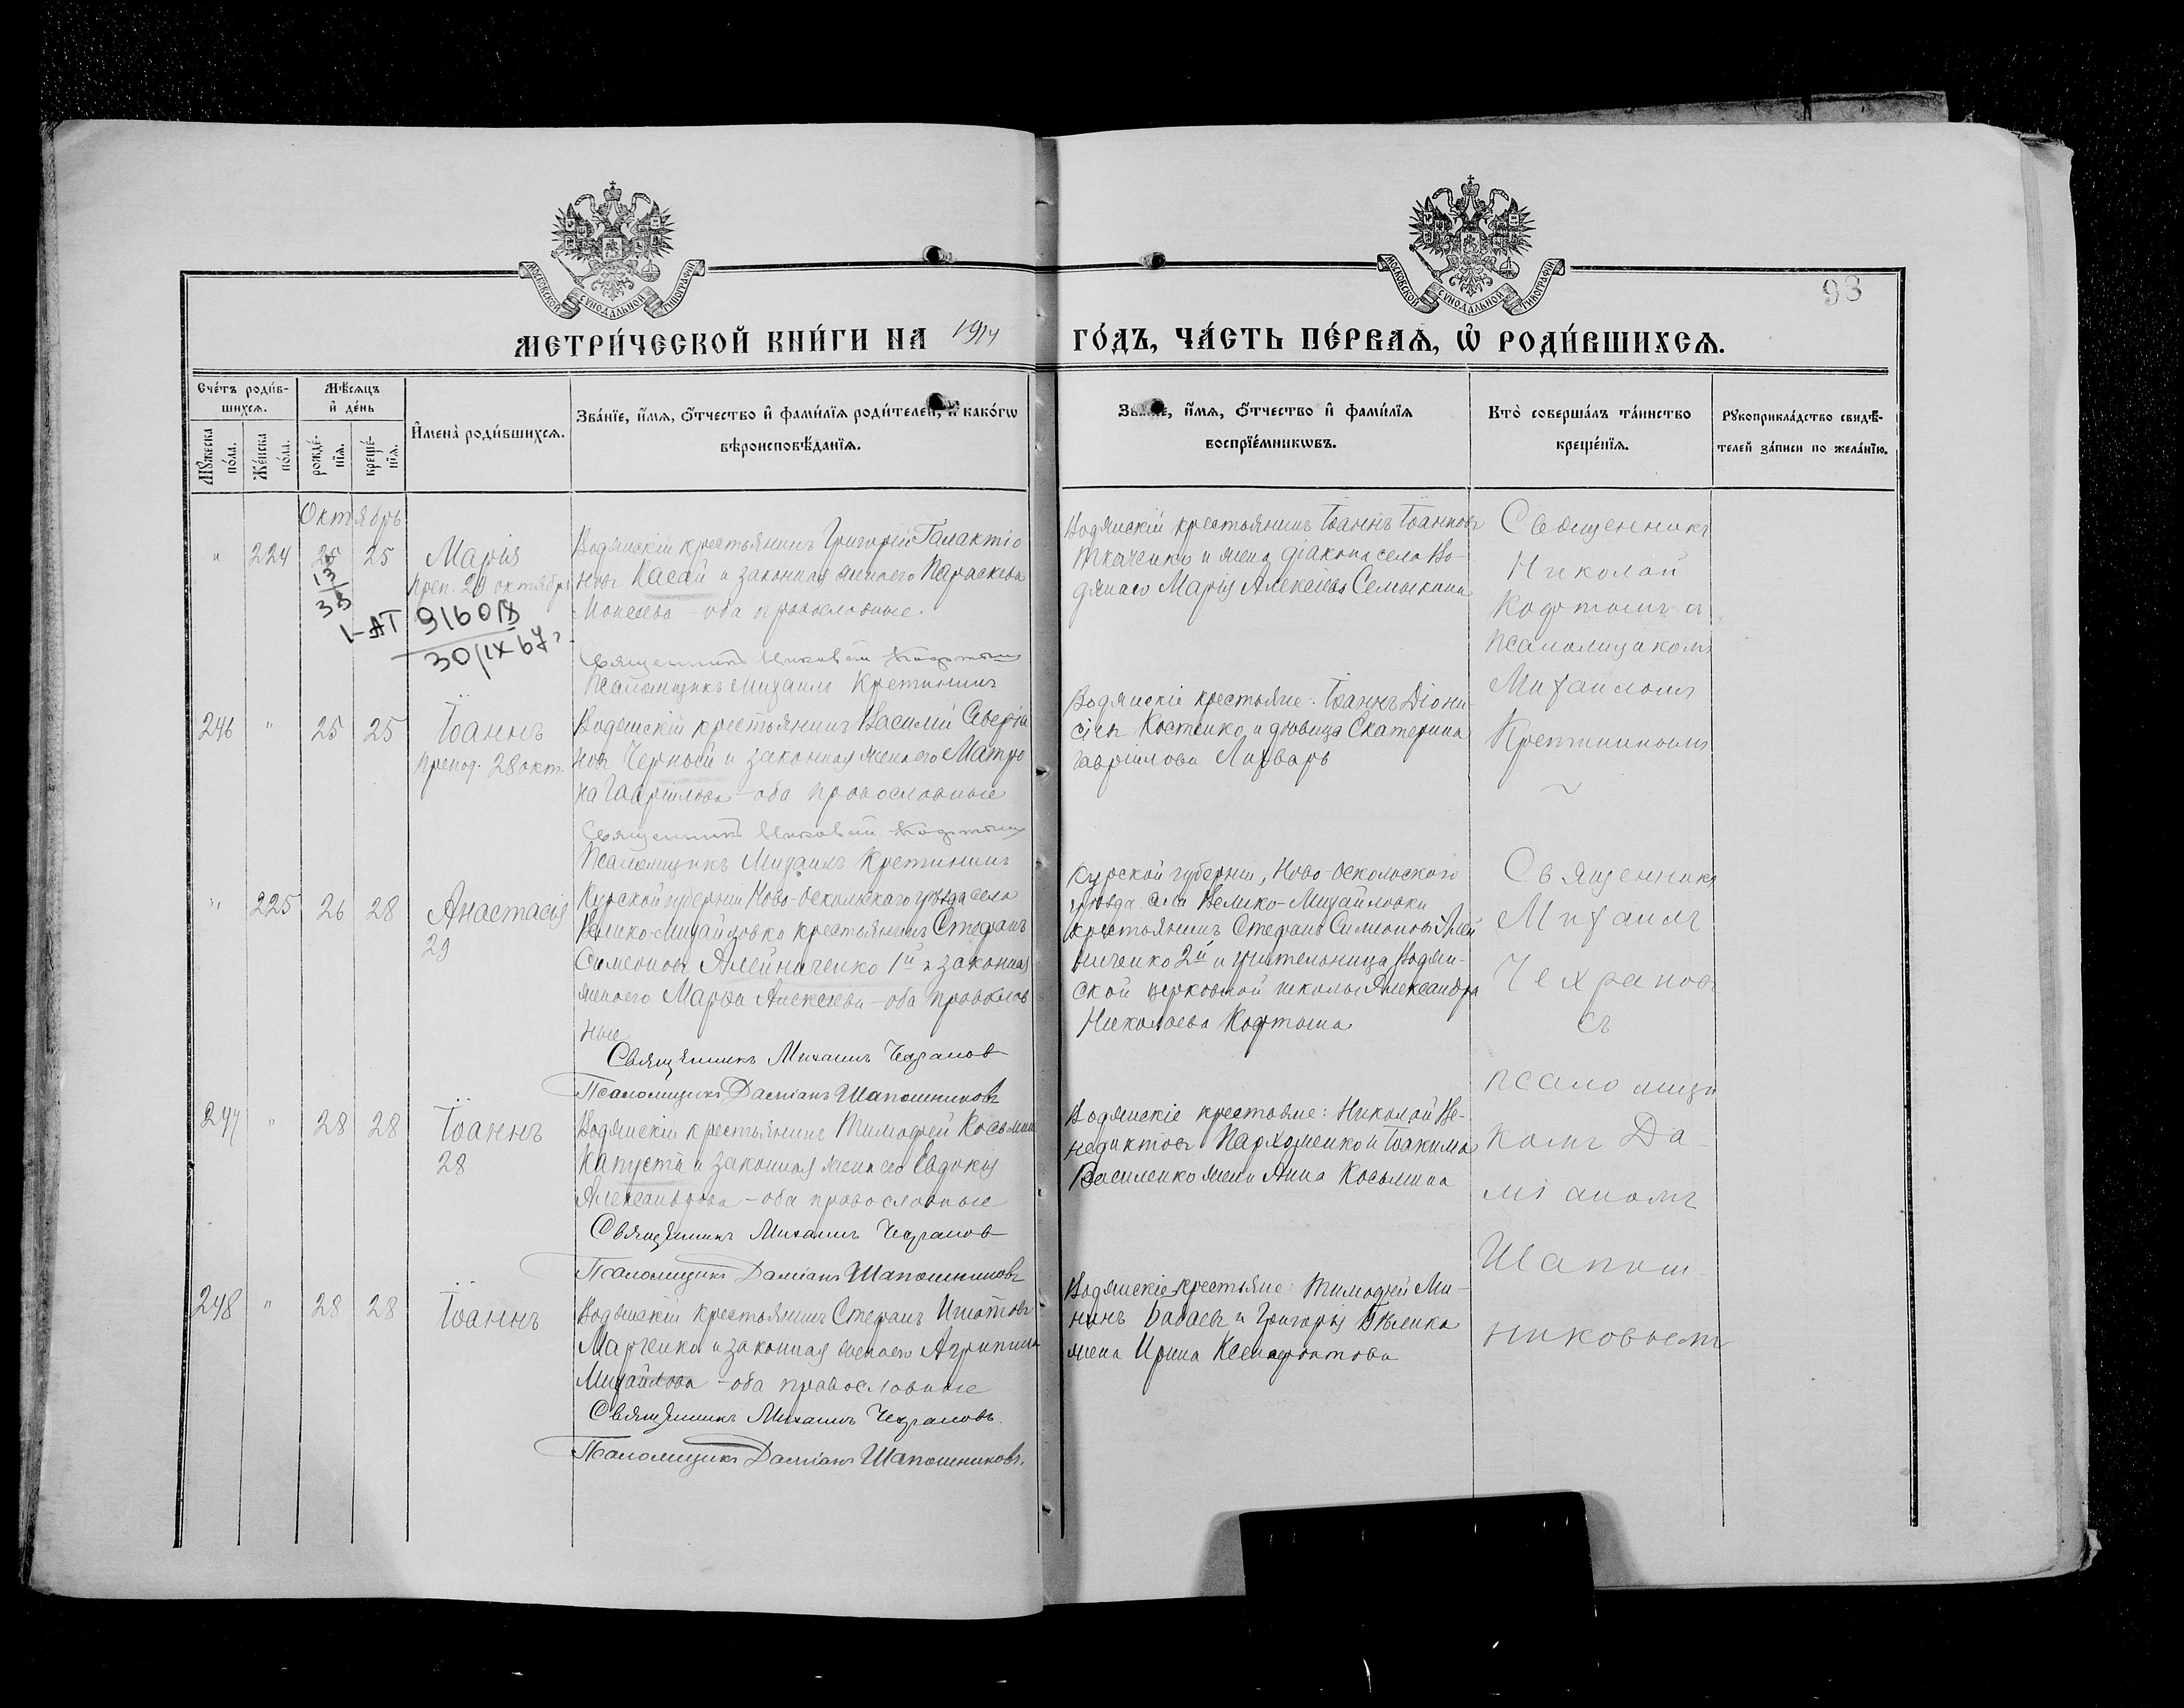 МОСКОВСКОЙ СѴНОДАЛЬНОЙ ТИПОГРАФІИ
МОСКОВСКОЙ СѴНОДАЛЬНОЙ ТИПОГРАФІИ
93
МЕТРИ́ЧЕСКОЙ КНИ́ГИ НА 1914 ГО́ДЪ, ЧА́СТЬ ПЕ́РВАѦ, Ѡ҆ РОДИ́ВШИХСѦ.
Сче́тъ роди́в-
шихсѧ.
Мꙋ́жеска по́ла.
Же́нска по́ла.
Мѣ́сѧцъ
и҆ де́нь
рожде́-
нїѧ.
креще́-
нїѧ.
И҆мена̀ роди́вшихсѧ.
Зва́нїе, и҆́мѧ, ѻ҆́тчество и҆ фами́лїѧ роди́телей, и҆ како́гѡ
вѣроисповѣ́данїѧ.
Зва́нїе, и҆́мѧ, ѻ҆́тчество и҆ фами́лїѧ
воспрїе́мникѡвъ.
Кто̀ соверша́лъ та́инство
креще́нїѧ.
Рꙋкоприкла́дство свидѣ́-
телей за́писи по жела́нїю.
Октябрь
" 224 25 25 Марія
13/38
Преп. 29 октября
I-АТ 916018
30/IX 67г.
Водянскій крестьянинъ Григорій Галактіо
новъ Касай и законная жена его Параскева
Моисеева – оба православные
Священникъ Николай Кафтынъ
Псаломщикъ Михаилъ Кретининъ
Водянскій крестьянинъ Іоаннъ Іоанновъ
Ткаченко и жена діакона села Во-
дянаго Марія Алексіева Семыкина
Священникъ
Николай
псаломщикомъ
Михаиломъ
Кретининымъ
246 " 25 25 Іоаннъ
Препод. 28 окт.
Водянскій крестьянинъ Василій Северіа
новъ Черный и законная жена его Матро
на Гавріилова – оба православные
Священникъ Николай Кафтынъ
Псаломщикъ Михаилъ Кретининъ
Водянскіе крестьяне: Іоаннъ Діони-
сіевъ Костенко и дѣвица Екатерина
Гавріилова Лихварь
" 225 26 28 Анастасія
29
Курской губерніи Ново-Оскольскаго уѣзда села
Велико-Михайловка крестьянинъ Стефанъ
Симеоновъ Алейниченко 1й и законная
жена его Марѳа Алексѣева – оба православ
ные
Священникъ Михаилъ Чехрановъ
Псаломщикъ Даміанъ Шапошниковъ
Курской губерніи, Ново-Оскольского
уѣзда села Велико-Михайловки
крестьянинъ Стефанъ Симеоновъ Алей
ниченко 2й и учительница Водян-
ской церковной школы Александра
Николаева
Священникъ
Михаилъ
Чехрановъ
съ
псаломщи
комъ Да-
міаномъ
Шапош
никовымъ
247 " 28 28 Іоаннъ
28
Водянскій крестьянинъ Тимоѳей Косьминъ
Капуста и законная жена его Евдокія
Александрова – оба православные
Священникъ Михаилъ Чехрановъ
Псаломщикъ Даміанъ Шапошниковъ
Водянскіе крестьяне: Николай Ве-
недиктовъ Пархоменко и Іоакима
Василенко жена Анна Косьмина
248 " 28 28 Іоаннъ
Водянскій крестьянинъ Стефанъ Игнатовъ
Марченко и законная жена его Агрипина
Михайлова – оба православные
Священникъ Михаилъ Чехрановъ.
Псаломщикъ Даміанъ Шапошниковъ.
Водянскіе крестьяне: Тимоѳей Ми-
нинъ Бабаевъ и Григорія Бѣленко
жена Ирина Ксенофонтова